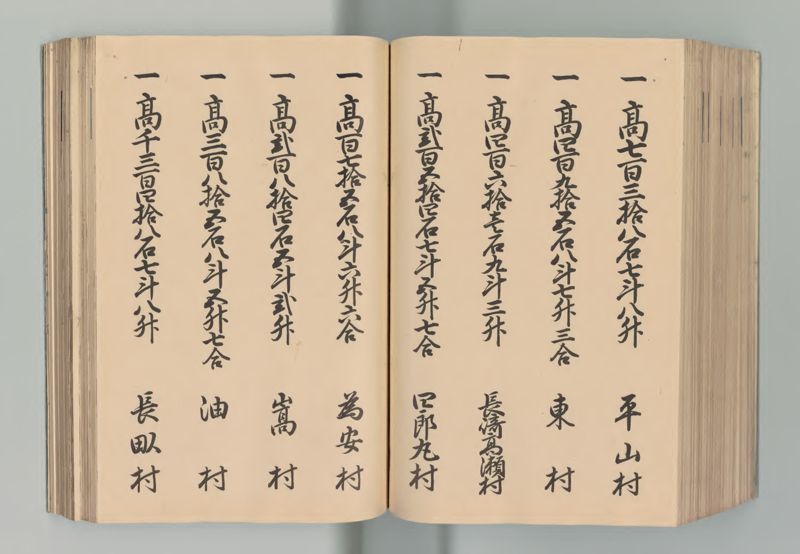 一 高七百三拾八石七斗八升 平山村
一 高四百九拾五石八斗七升三合 東村
一 高四百六拾壱石九斗三升 長濱高瀬村
一 高弐百五拾四石七斗五升七合 四郎丸村
一 高百七拾五石八斗六升六合 為安村
一 高弐百八拾四石五斗弐升 嵩村
一 高三百八拾五石八斗五升七合 油村
一 高千三百四拾八石七斗八升 長畝村